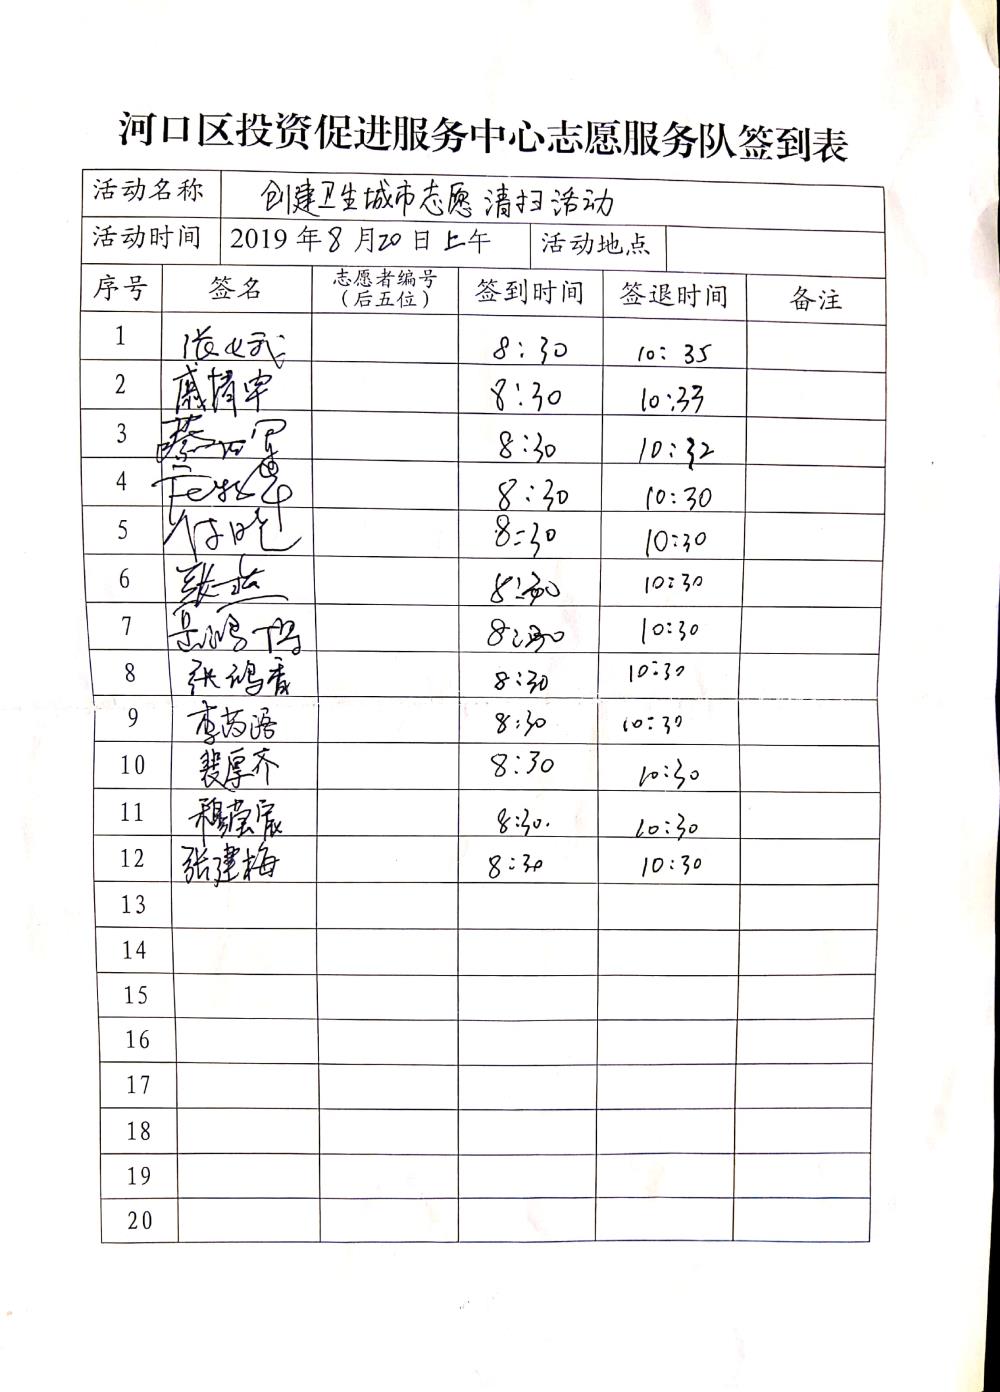 河口区投资促进服务中心志愿服务队签到表
活动名称 创建卫生城市志愿清扫活动
活动时间 2019年8月20日上午 活动地点
序号 签名 志愿者编号（后五位） 签到时间 签退时间 备注
1 8:30 10:35
2 戚精宇 8:30 10:33
3 8:30 10:32
4 8:30 10:30
5 8:30 10:30
6 张 8:30 10:30
7 8:30 10:30
8 张鸿香 8:30 10:30
9 李芮语 8:30 10:30
10 裴厚齐 8:30 10:30
11 穆莹宸 8:30. 10:30
12 张建梅 8:30 10:30
13
14
15
16
17
18
19
20